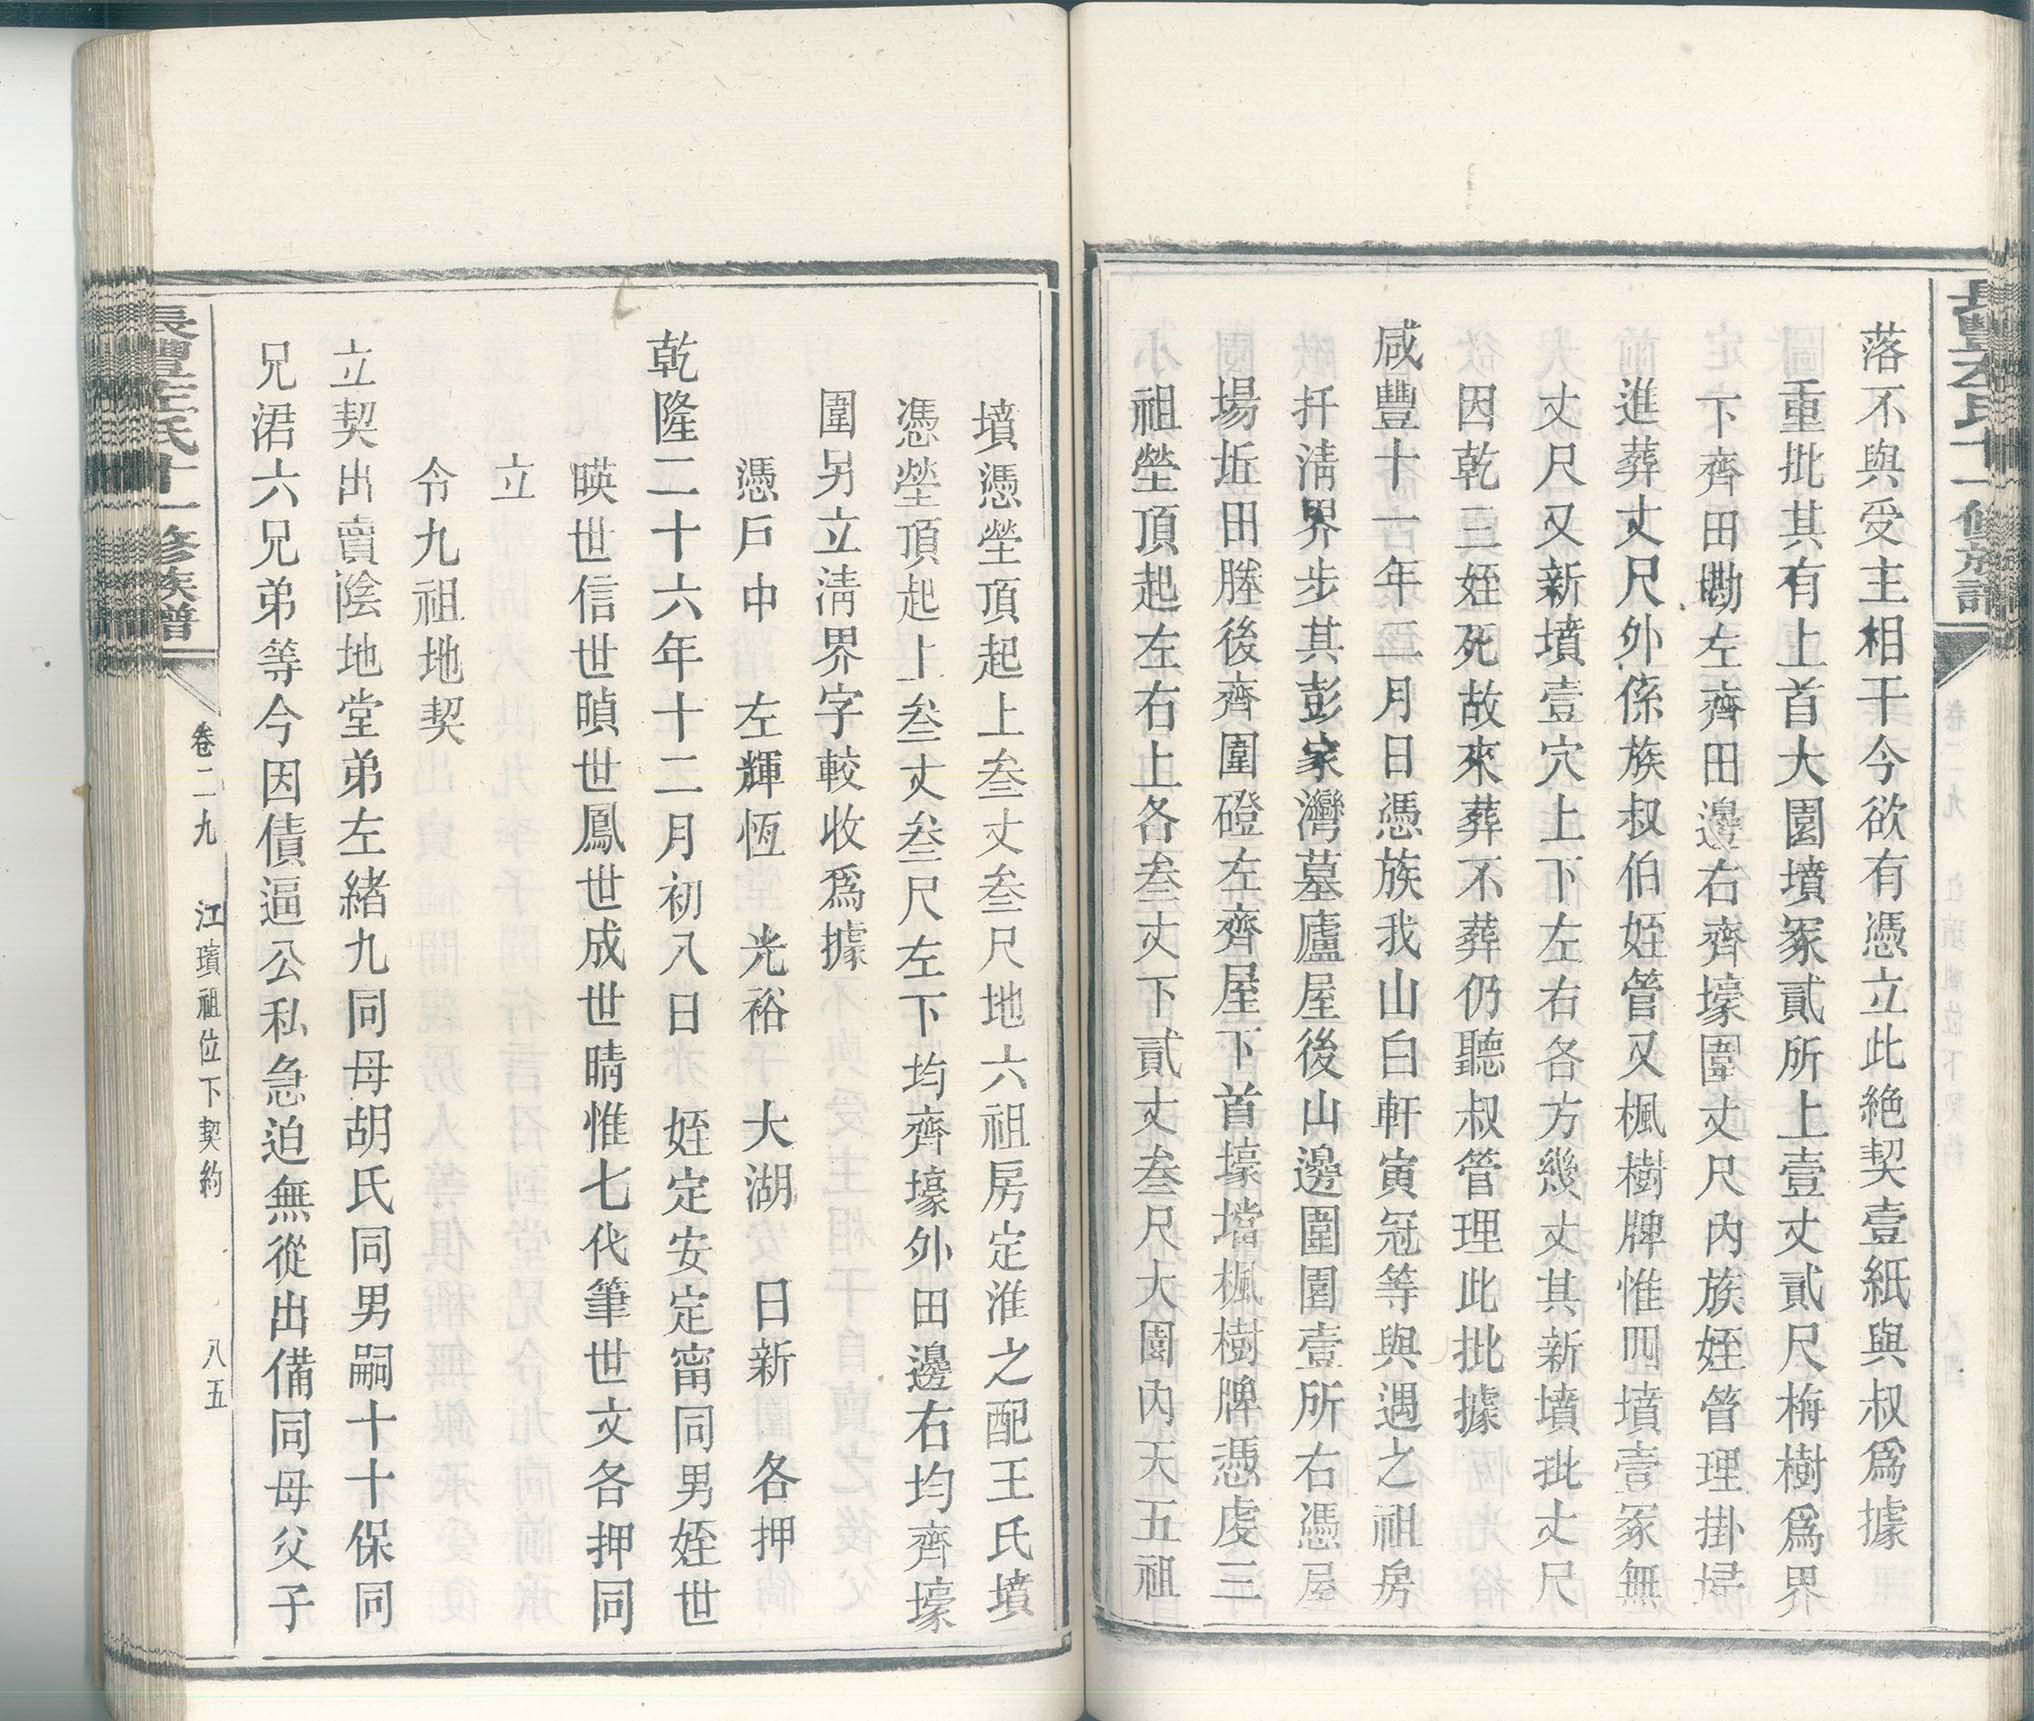 落不與受主相干今欲有憑立此絶契壹紙與叔爲據
重批其有上首大園墳冢貳所上壹丈貳尺梅樹爲界
下齊田勘左齊田邊右齊壕圍丈尺內族姪管理掛掃
進葬丈尺外係族叔伯姪管又楓樹牌惟四墳壹冢無
丈尺又新墳壹穴上下左右各方幾丈其新墳批丈尺
因乾三姪死故來葬不葬仍聽叔管理此批據
咸豐十一年二月日憑族我山白軒寅冠等與遇之祖房
扦淸界步其彭家灣墓廬屋後山邊圍園壹所右憑屋
場坵田塍後齊圍磴左齊屋下首壕壋楓樹牌憑虔三
祖塋頂起左右上各叁丈下貳丈叁尺大園內天五祖
墳憑塋頂起上叁丈叁尺地六祖房定淮之配王氏墳
憑塋頂起上叁丈叁尺左下均齊壕外田邊右均齊壕
圍另立淸界字較收爲據
憑戶中 左輝恆 光裕 大湖 日新 各押
乾隆二十六年十二月初八日 姪定安定甯同男姪世
暎世信世晭世鳳世成世晴惟七代筆世文各押同
立
令九祖地契
立契出賣陰地堂弟左緒九同母胡氏同男嗣十十保同
兄涒六兄弟等今因債逼公私急迫無從出備同母父子
長豐左氏十一修族譜
卷二九
江璸祖位下契約
八五
長豐左氏十一修族譜